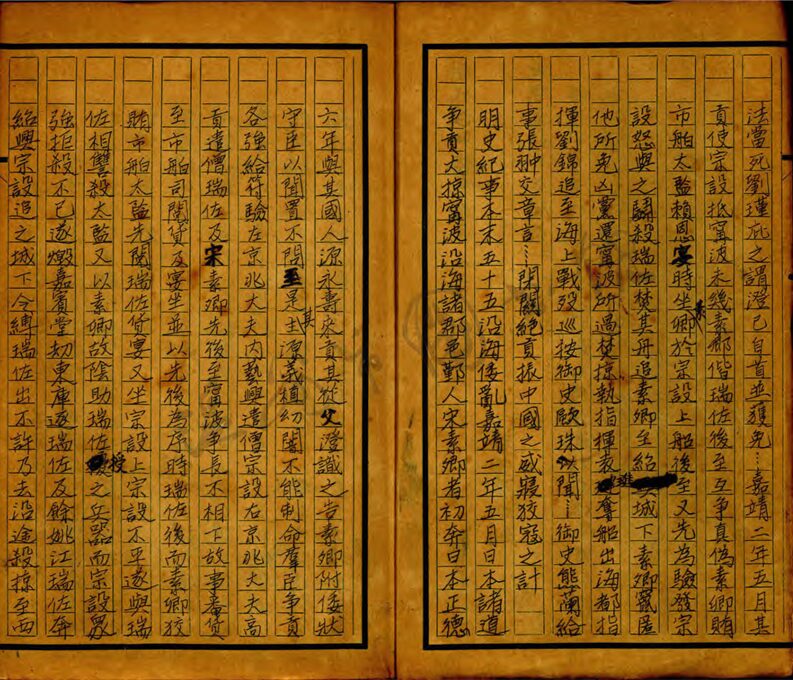 法當死劉瑾庇之謂澄已自首並獲免…嘉靖二年五月其
貢使宗設抵甯波未幾素卿偕瑞佐後至互爭真偽素卿賄
市舶太監賴恩宴時坐素卿於宗設上船後至又先為驗發宗
設怒與之鬪殺瑞佐焚其舟追素卿至紹城下素卿竄匿
他所免凶黨還甯波所過焚掠執指揮袁璡奪船出海都指
揮劉錦追至海上戰歿巡按御史歐珠以聞…御史熊蘭給
事張翀交章言…閉關絕貢振中國之威寢狡寇之計
明史紀事本末五十五沿海倭亂嘉靖二年五月日本諸道
爭貢大掠甯波沿海諸郡邑鄞人宋素卿者初奔日本正德
六年與其國人源永壽來貢其從父澄識之告素卿附倭狀
守臣以聞置不問至是其主源義植幼闇不能制命羣臣爭貢
各強給符驗左京兆大夫内藝興遣僧宗設右京兆大夫高
貢遣僧瑞佐及宋素卿先後至甯波爭長不相下故事番貨
至市舶司閱貨及宴坐並以先後為序時瑞佐後而素卿狡
賄市舶太監先閱瑞佐貨宴又坐宗設上宗設不平遂與瑞
佐相讐殺太監又以素卿故陰助瑞佐授之兵器而宗設衆
強拒殺不已遂燬嘉賓堂劫東庫逐瑞佐及餘姚江瑞佐奔
紹興宗設追之城下令縛瑞佐出不許乃去沿途殺掠至西